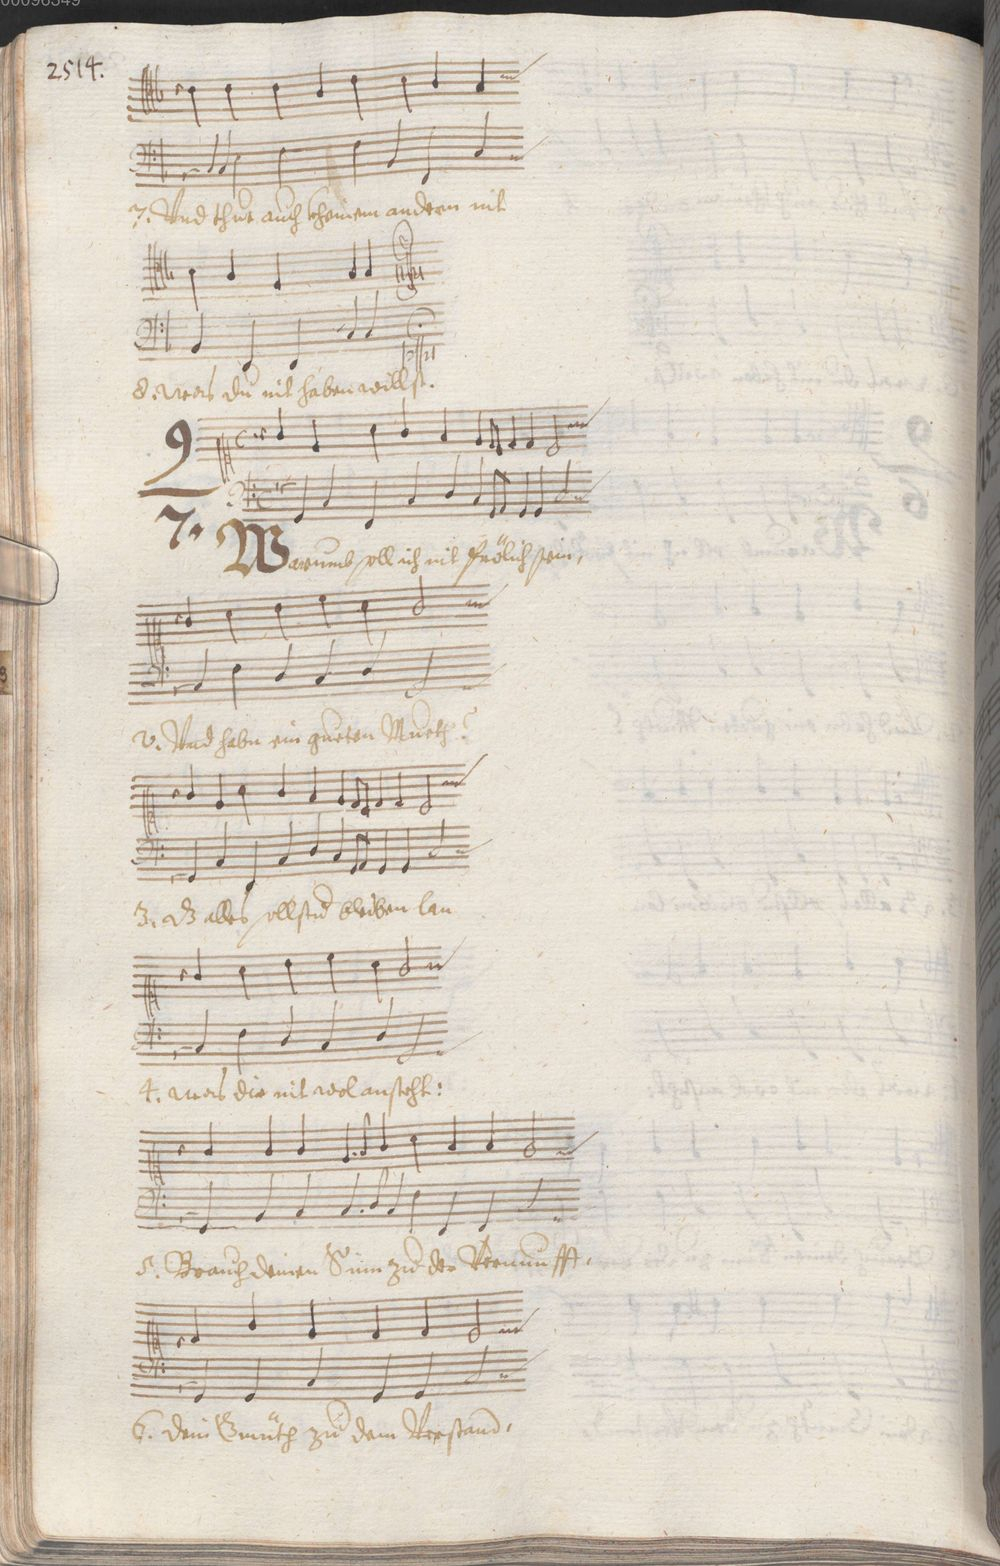 00096349
2514.
7. Und thue auch kheinem andern nit
8. was du nit haben willst.
9
7.
Warumb soll ich nit frölich sein,
2. Und habn ein gueten Mueth?
3. dz alles sollstu bleiben lan
4. was dir nit wol ansteht:
5. Brauch deinen Sinn zu der Vernunfft,
6. dein Gmüth zu dem Verstand,